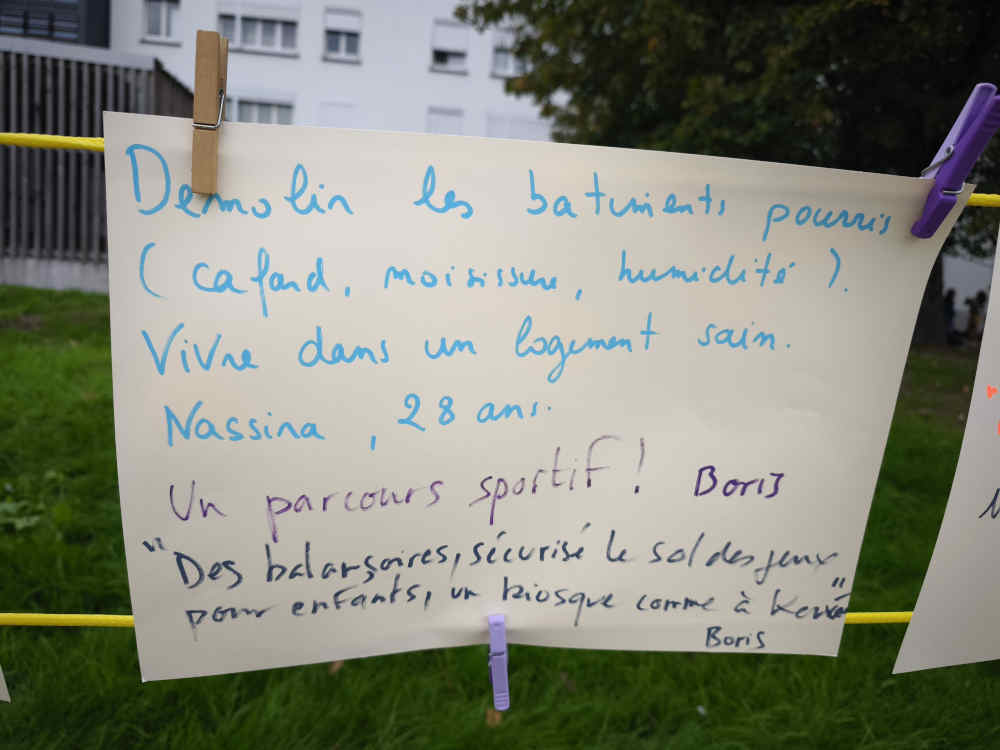 Demolir les batiments pourris
(cafard, moisissure, humidité).
Vivre dans un logement sain.
Nassira, 28 ans.
Un parcours sportif! Boris
"Des balançoires, sécurisé le sol des jeux
pour enfants, un kiosque comme à"
Boris